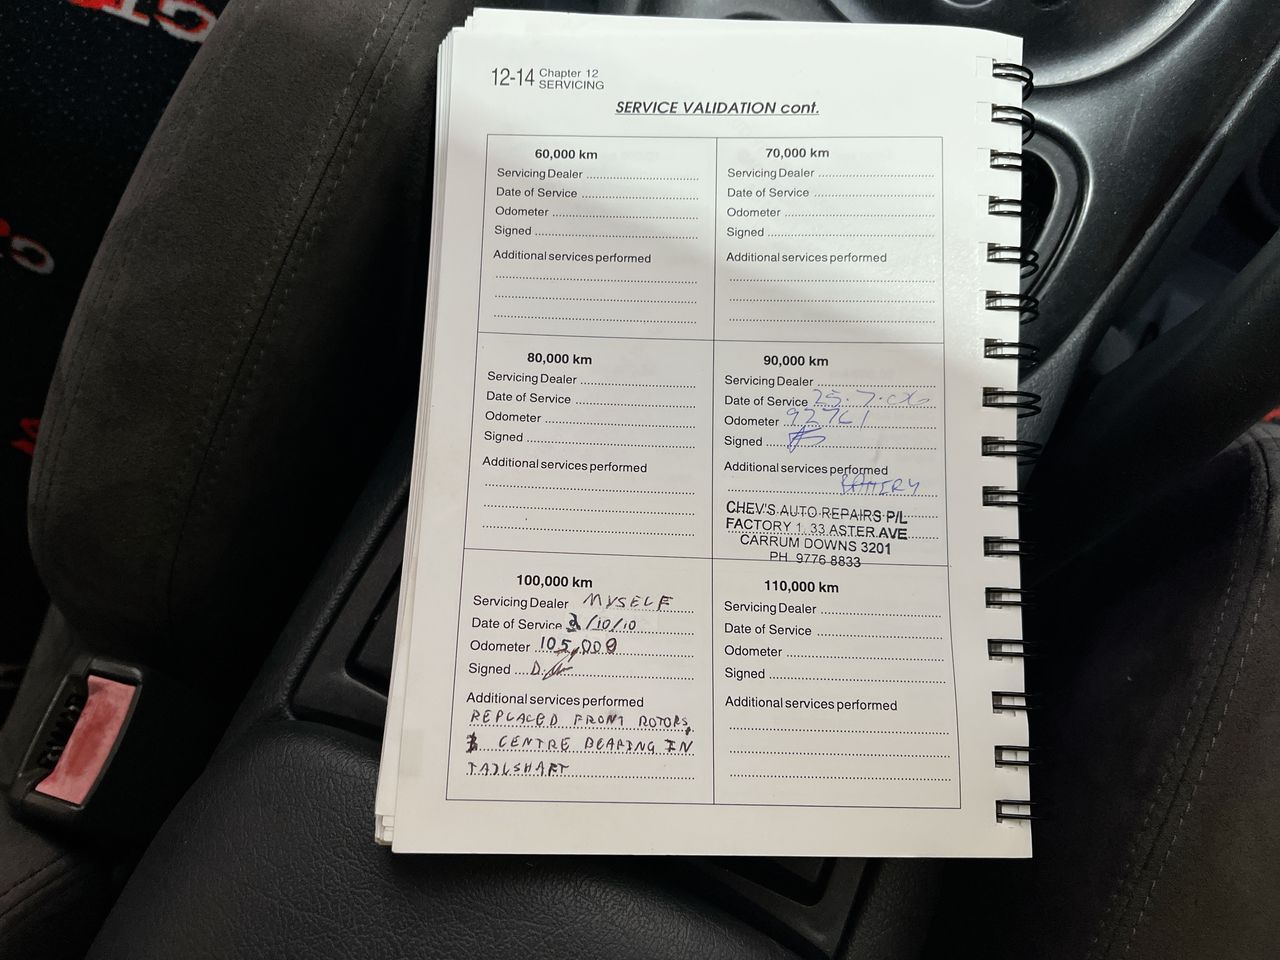 12-14 Chapter 12
SERVICING
SERVICE VALIDATION cont.
60,000 km
Servicing Dealer
Date of Service
Odometer
Signed
Additional services performed
70,000 km
Servicing Dealer
Date of Service
Odometer
Signed
Additional services performed
80,000 km
Servicing Dealer
Date of Service
Odometer
Signed
Additional services performed
90,000 km
Servicing Dealer
Date of Service 25.7.06
Odometer
Signed
Additional services performed
BATTERY
CHEV'S AUTO REPAIRS P/L
FACTORY 1, 33 ASTER AVE
CARRUM DOWNS 3201
PH 9776 8833
100,000 km
Servicing Dealer MYSELF
Date of Service /10/10
Odometer 105,000
Signed
Additional services performed
REPLACED FRONT ROTORS,
CENTRE BEARING IN
TAILSHAFT
110,000 km
Servicing Dealer
Date of Service
Odometer
Signed
Additional services performed